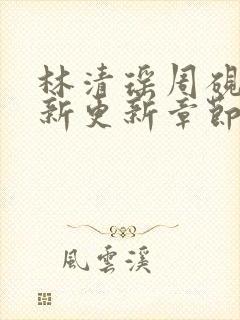 林清瑶周砚
新更新章節
風雲溪